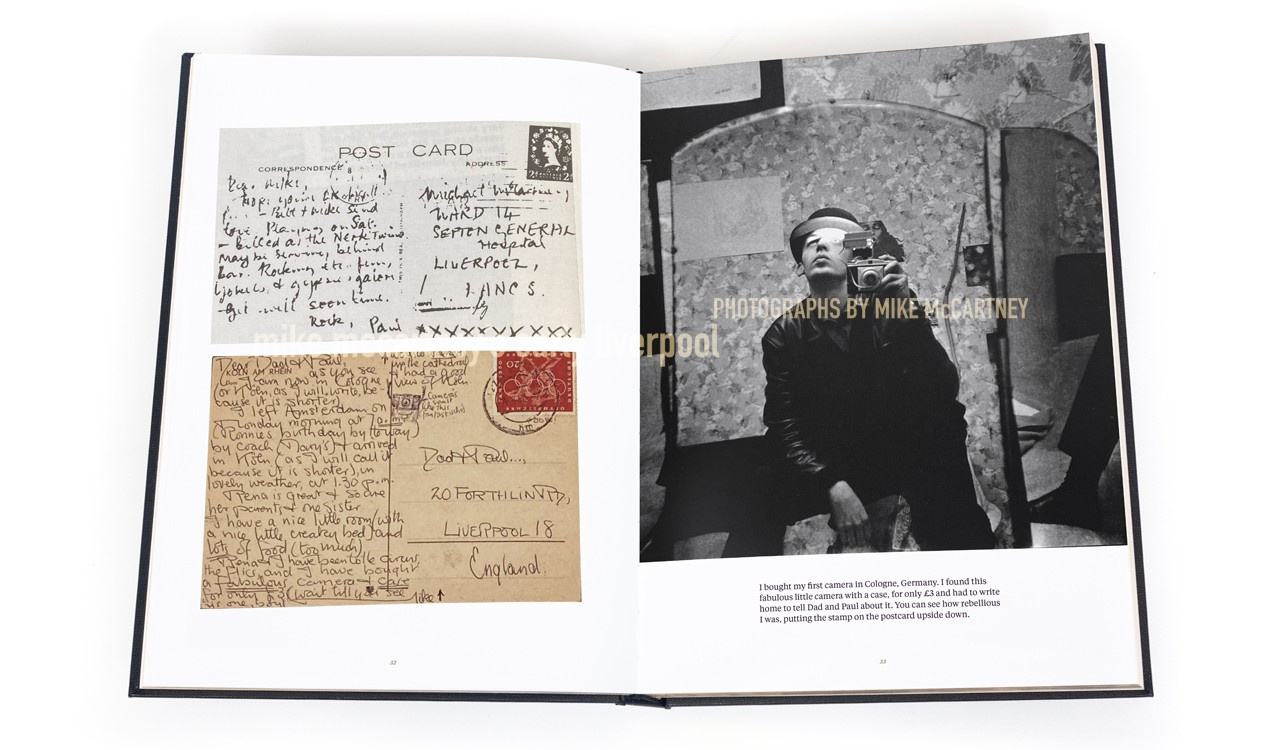 POST CARD
CORRESPONDENCE
ADDRESS
- Billed as the Nerk Twins.
May be Serving behind
bar. Rocking etc. fun,
get well soon time.
Rock, Paul XXXXXXXXXX
WARD 14
SEFTON GENERAL
Hospital
LIVERPOOL,
LANCS.
Dear Dad & Paul,
KÖLN AM RHEIN as you see
I am now in Cologne
(or Köln, as I will write, be-
cause it is shorter).
I left Amsterdam on
Monday morning at
(Ronnies birthday by the way)
by coach (Mary's) & arrived
in Köln (as I will call it
because it is shorter), in
lovely weather, at 1.30 p.m.
Rena is great & so are
her parents & one sister
I have a nice little room (with
a nice little creaky bed) and
lots of food (too much)
Rena & I have been to the circus
the flics and I have bought
a fabulous camera & case
for only £3 (wait till you see
Mike ↑
in the cathedral
& had a good
view of Köln
20
Dad & Paul...,
20 FORTHLIN RD,
LIVERPOOL 18
England.
32
PHOTOGRAPHS BY MIKE McCARTNEY
mike mccartney's early liverpool
I bought my first camera in Cologne, Germany. I found this
fabulous little camera with a case, for only £3 and had to write
home to tell Dad and Paul about it. You can see how rebellious
I was, putting the stamp on the postcard upside down.
33